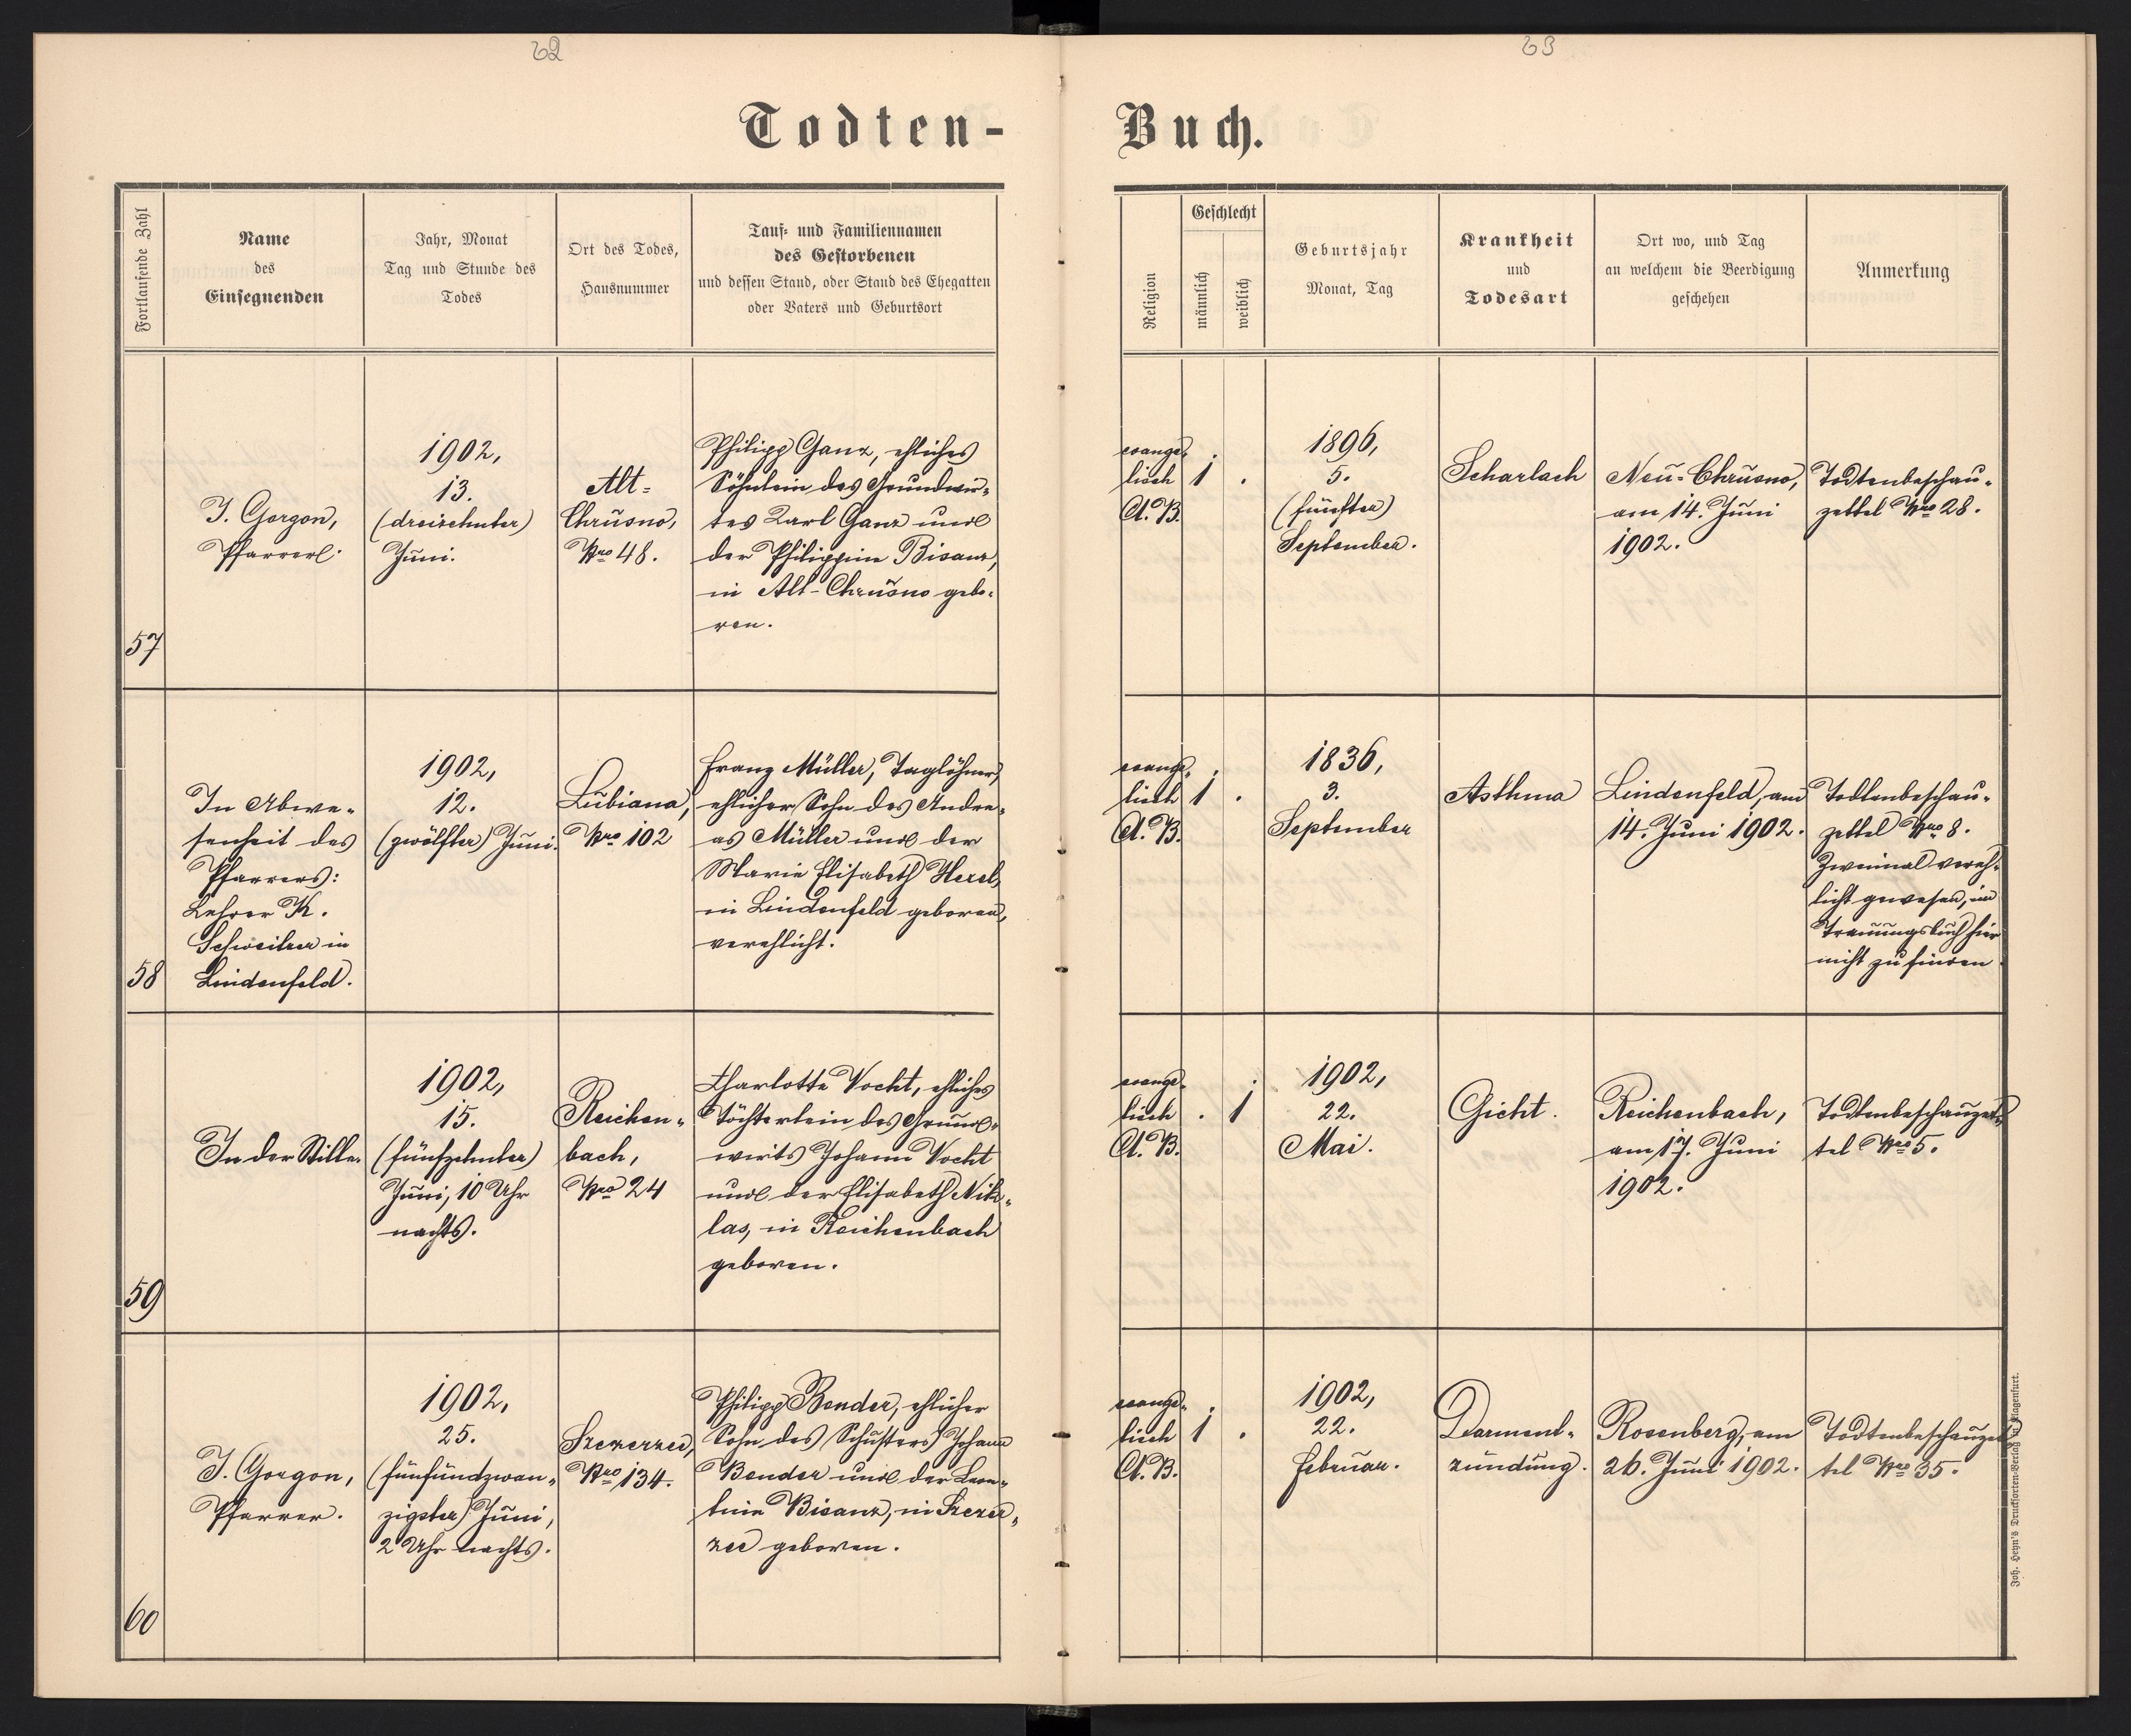 62
63
Todten-
Buch.
Fortlaufende Zahl
Name
des
Einsegnenden
Jahr, Monat
Tag und Stunde des
Todes
Ort des Todes,
Hausnummer
Tauf- und Familiennamen
des Gestorbenen
und dessen Stand, oder Stand des Ehegatten
oder Vaters und Geburtsort
Religion
Geschlecht
männlich
weiblich
Geburtsjahr
Monat, Tag
Krankheit
und
Todesart
Ort wo, und Tag
an welchem die Beerdigung
geschehen
Anmerkung
57
J. Gorgon,
Pfarrer.
1902,
13.
(dreizehnter)
Juni.
Alt-
Chrusno,
Nro 48.
Philipp Ganz, ehliches
Söhnlein des Grundwir-
tes Karl Ganz und
der Philippine Bisanz,
in Alt-Chrusno gebo-
ren.
evange-
lisch
A. B.
1
.
1896,
5.
(fünfter)
September.
Scharlach
Neu-Chrusno,
am 14. Juni
1902.
Todtenbeschau-
zettel Nro 28.
58
In Abwe-
senheit des
Pfarrers:
Lehrer K.
Schweitzer in
Lindenfeld.
1902,
12.
(zwölfter) Juni.
Lubiana,
Nro 102
Franz Müller, Taglöhner,
ehlicher Sohn des Andre-
as Müller und der
Marie Elisabeth Hexel,
in Lindenfeld geboren,
verehlicht.
evange-
lisch
A. B.
1
.
1836,
3.
September
Asthma
Lindenfeld, am
14. Juni 1902.
Todtenbeschau-
zettel Nro 8.
Zweimal vereh-
licht gewesen, im
Trauungsbuch hier
nicht zu finden.
59
In der Stille.
1902,
15.
(fünfzehnter)
Juni, 10 Uhr
nachts.
Reichen-
bach,
Nro 24
Charlotte Vocht, ehliches
Töchterlein des Grund-
wirts Johann Vocht
und der Elisabeth Nik-
las, in Reichenbach
geboren.
evange-
lisch
A. B.
.
1
1902,
22.
Mai.
Gicht.
Reichenbach,
am 17. Juni
1902.
Todtenbeschauzet-
tel Nro 5.
60
J. Gorgon,
Pfarrer.
1902,
25.
(fünfundzwan-
zigster) Juni,
2 Uhr nachts.
Szczerzec,
Nro 134.
Philipp Bender, ehlicher
Sohn des Schusters Johann
Bender und der Leon-
tine Bisanz, in Szczer-
zec geboren.
evange-
lisch
A. B.
1
.
1902,
22.
Februar.
Darment-
zündung.
Rosenberg, am
26. Juni 1902.
Todtenbeschauzet-
tel Nro 35.
Joh. Heyn's Drucksorten-Verlag in Klagenfurt.